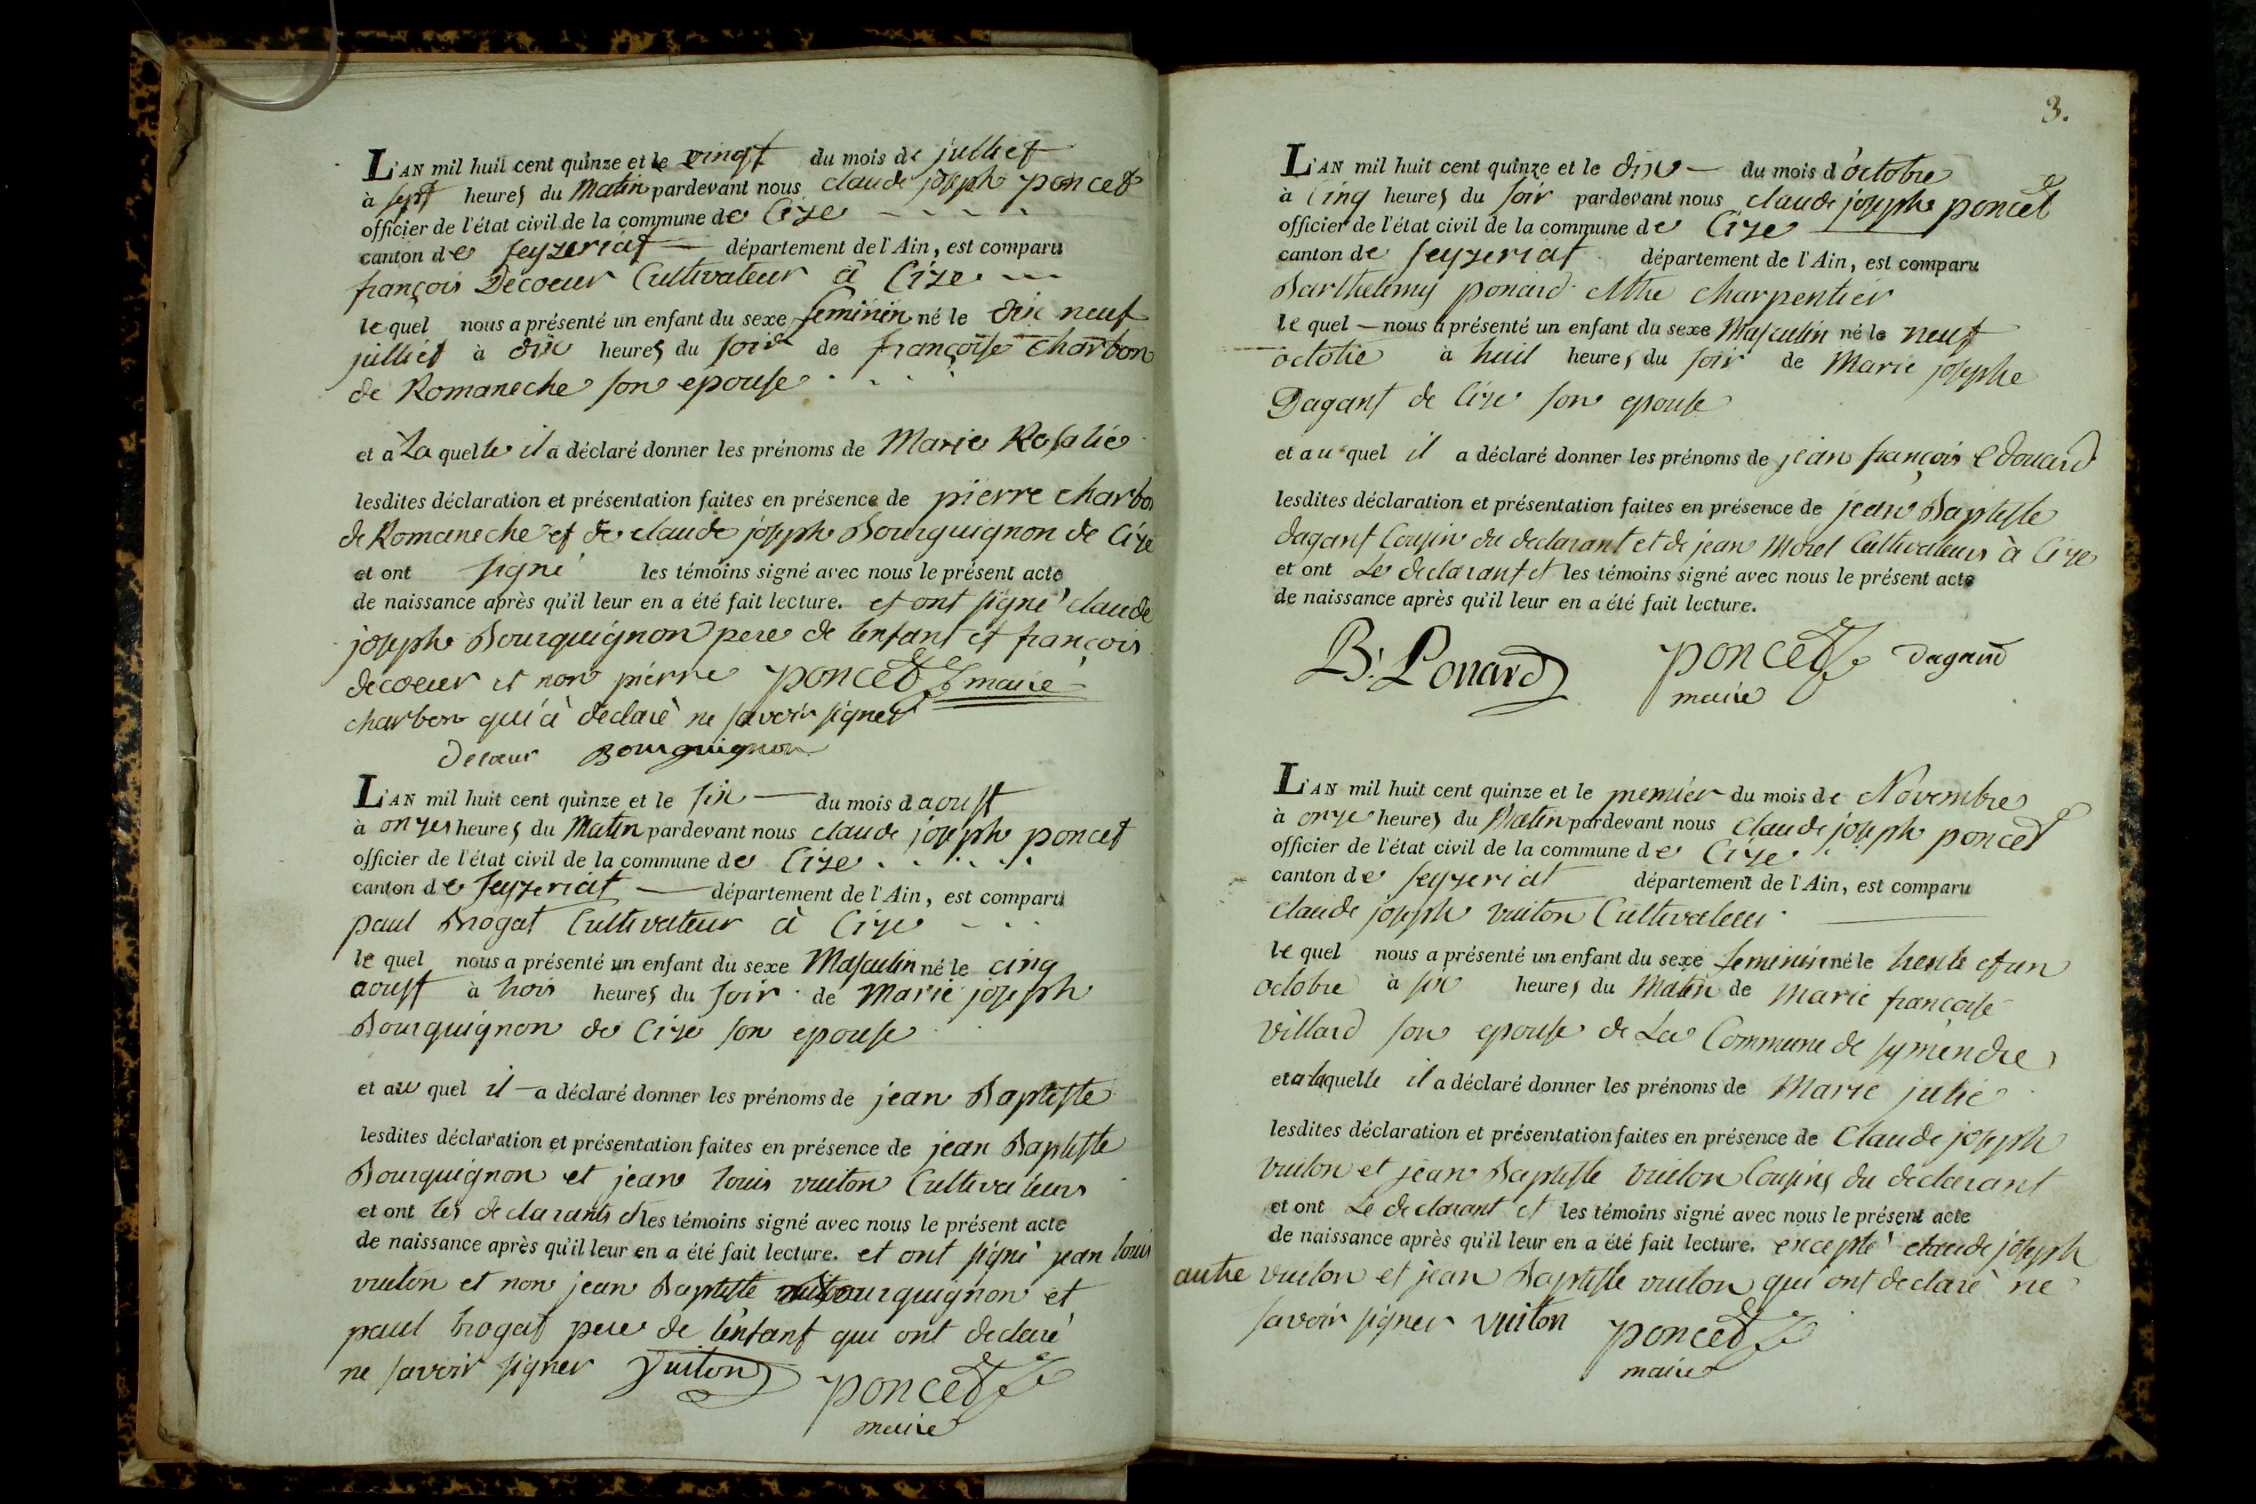 L'AN mil huit cent quinze et le vingt du mois de julliet
à sept heures du Matin pardevant nous claude joseph poncet
officier de l'état civil de la commune de Cize
canton de seyzeriat département de l'Ain, est comparu
françois Decoeur Cultivateur à Cize
le quel nous a présenté un enfant du sexe feminin né le dix neuf
julliet à dix heures du soir de françoise charbon
de Romaneche son epouse
et a La quelle il a déclaré donner les prénoms de Marie Rosalie
lesdites déclaration et présentation faites en présence de pierre charbon
de Romaneche et de claude joseph Bourguignon de Cize
et ont signé les témoins signé avec nous le présent acte
de naissance après qu'il leur en a été fait lecture. et ont signé claude
joseph Bourguignon pere de l'enfant et françois
decoeur et non pierre poncet maire
charbon qui à declaré ne savoir signer
Decoeur Bourguignon
L'AN mil huit cent quinze et le six du mois d aoust
à onzes heures du Matin pardevant nous claude joseph poncet
officier de l'état civil de la commune de Cize
canton de seyzeriat département de l'Ain, est comparu
paul Brogat Cultivateur à Cize
le quel nous a présenté un enfant du sexe Masculin né le cinq
aoust à trois heures du soir de Marie joseph
Bourguignon de Cize son epouse
et au quel il a déclaré donner les prénoms de jean Baptiste
lesdites déclaration et présentation faites en présence de jean Baptiste
Bourguignon et jean louis vuiton Cultivateurs
et ont les declarants et les témoins signé avec nous le présent acte
de naissance après qu'il leur en a été fait lecture. et ont signé jean louis
vuiton et non jean Baptiste Bourguignon et
paul brogat pere de l'enfant qui ont declaré
ne savoir signer Vuiton poncet
maire
3.
L'AN mil huit cent quinze et le dix du mois d'octobre
à Cinq heures du soir pardevant nous claude joseph poncet
officier de l'état civil de la commune de Cize
canton de seyzeriat département de l'Ain, est comparu
Barthelemy ponard Mtre charpentier
le quel nous a présenté un enfant du sexe Masculin né le neuf
octobre à huit heures du soir de Marie josephe
Dagant de Cize son epouse
et au quel il a déclaré donner les prénoms de jean françois Edouard
lesdites déclaration et présentation faites en présence de jean Baptiste
dagant Cousin du declarant et de jean Morel Cultivateurs à Cize
et ont Le declarant et les témoins signé avec nous le présent acte
de naissance après qu'il leur en a été fait lecture.
B. Ponard poncet dagand
maire
L'AN mil huit cent quinze et le premier du mois de Novembre
à onze heures du Matin pardevant nous Claude joseph poncet
officier de l'état civil de la commune de Cize
canton de seyzeriat département de l'Ain, est comparu
Claude joseph vuiton Cultivateur
le quel nous a présenté un enfant du sexe feminin né le trente et un
octobre à six heures du Matin de Marie françoise
villard son epouse de La Commune de symendre
et a laquelle il a déclaré donner les prénoms de Marie julie
lesdites déclaration et présentation faites en présence de Claude joseph
vuiton et jean Baptiste vuiton Cousins du declarant
et ont Le declarant et les témoins signé avec nous le présent acte
de naissance après qu'il leur en a été fait lecture. excepté claude joseph
autre vuiton et jean Baptiste vuiton qui ont declaré ne
savoir signer vuiton poncet
maire